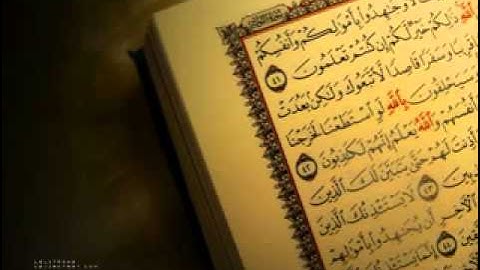 وَجَٰهِدُوا۟ بِأَمْوَٰلِكُمْ وَأَنفُسِكُمْ
ٱللَّهِ ذَٰلِكُمْ خَيْرٌ لَّكُمْ إِن كُنتُمْ تَعْلَمُونَ ٤١
وَسَفَرًا قَاصِدًا لَّٱتَّبَعُوكَ وَلَٰكِنۢ بَعُدَتْ
وَسَيَحْلِفُونَ بِٱللَّهِ لَوِ ٱسْتَطَعْنَا لَخَرَجْنَا
أَنفُسَهُمْ وَٱللَّهُ يَعْلَمُ إِنَّهُمْ لَكَٰذِبُونَ ٤٢
أَذِنتَ لَهُمْ حَتَّىٰ يَتَبَيَّنَ لَكَ ٱلَّذِينَ
٤٣ لَا يَسْتَـْٔذِنُكَ ٱلَّذِينَ
ٱلْـَٔاخِرِ أَن يُجَٰهِدُوا۟ بِأَمْوَٰلِهِمْ
٤٤ إِنَّمَا